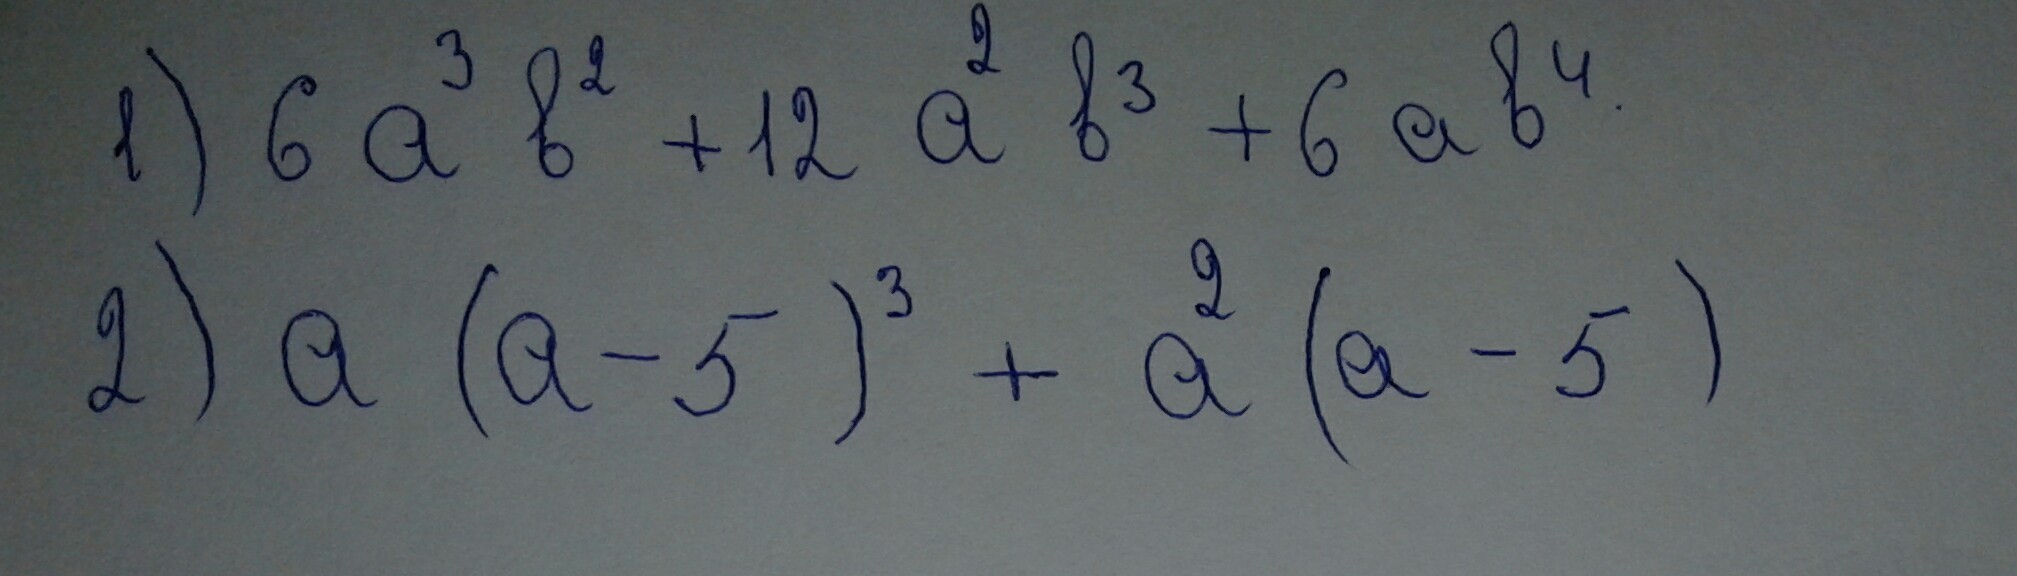 1) 6a³b² + 12a²b³ + 6ab⁴.
2) a(a-5)³ + a²(a-5)